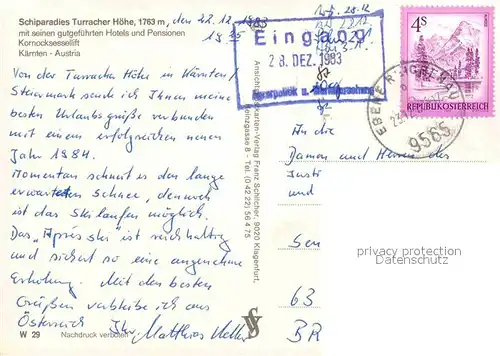 Schiparadies Turracher Höhe, 1763 m, den 22.12.1983
mit seinen gutgeführten Hotels und Pensionen
Kornocksessellift
Kärnten - Austria
Von der Turracher Höhe in Kärnten/
Steiermark sende ich Ihnen meine
besten Urlaubsgrüße verbunden
mit einem erfolgreichen neuen
Jahr 1984.
Momentan schneit es den lange
erwarteten Schnee, dennoch
ist das Skilaufen möglich.
Das "Après ski" ist reichhaltig
und sichert so eine angenehme
Erholung. Mit den besten
Grüßen verbleibe ich aus
Österreich Ihr Matthias
W 29 Nachdruck verboten
Ansichtskarten-Verlag Franz Schilcher, 9020 Klagenfurt,
gasse 8 - Tel. (0 42 22) 56 4 75
Eingang
28. DEZ. 1983
4S
REPUBLIK ÖSTERREICH
EBENE REICHENAU
9565
An die
Damen und Herren des
Justi
und
Sen
63
BR
privacy protection
Datenschutz